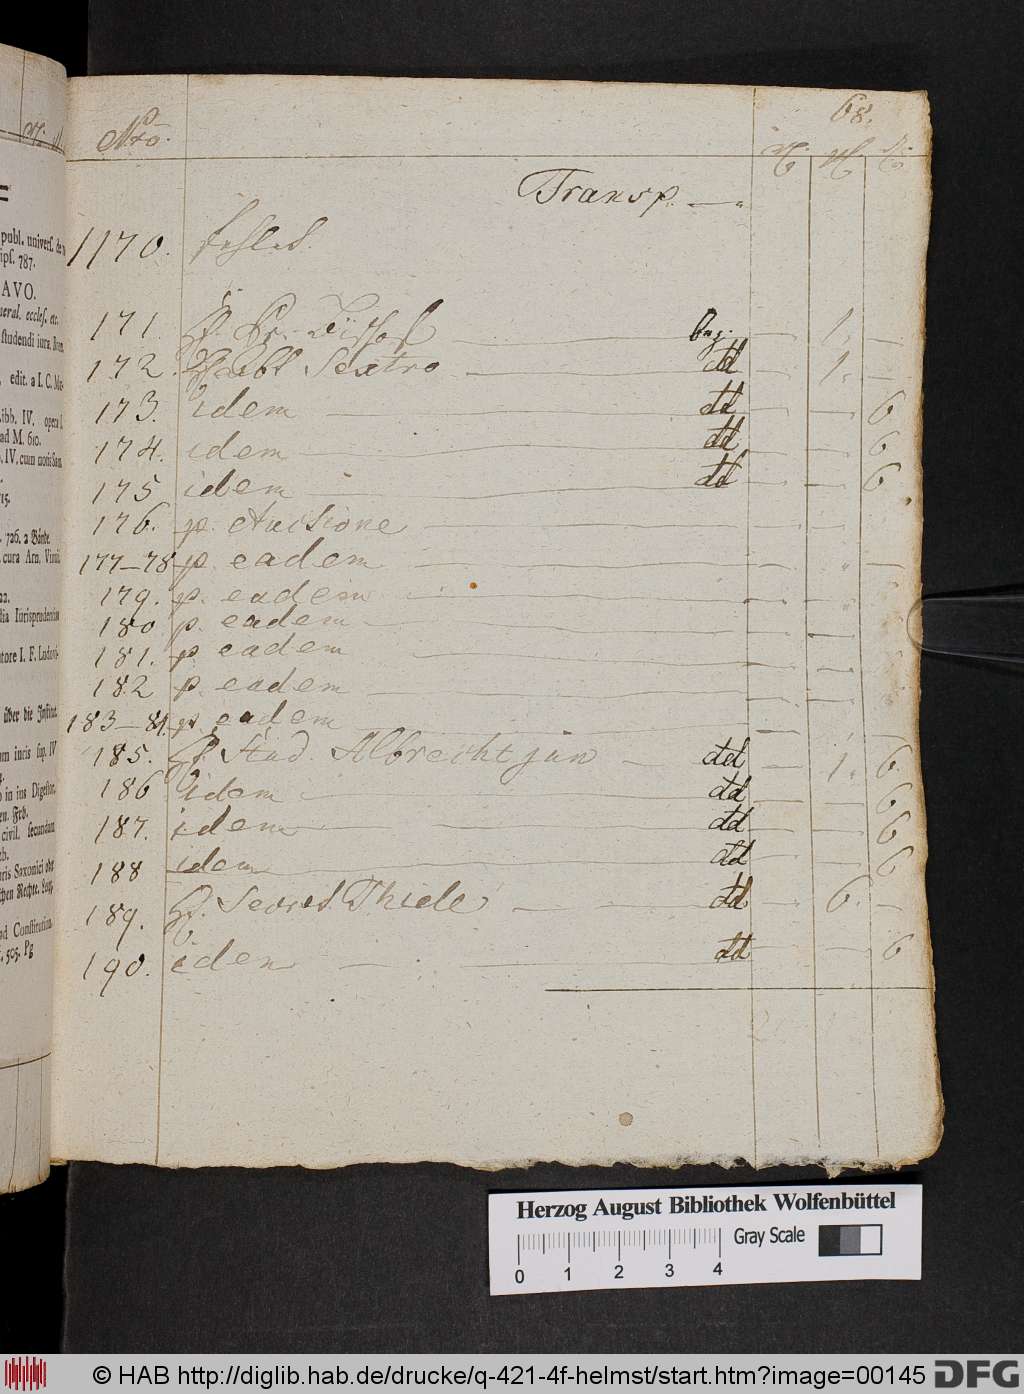 68.
Nro.
Transp. —
1170. fehlet.
171. H. Pr. Bischof — bez. — 1. —
172. H. Abt Sextro — dd — 1. —
173. idem — dd — — 6
174. idem — dd — — 6
175 idem — dd — — 6
176. p. Auctione — — —
177–78 p. eadem — — —
179. p. eadem — — —
180 p. eadem — — —
181. p. eadem — — —
182 p. eadem — — —
183–84. p. eadem — — —
185. H. Stud Albrecht jun — dd — 1. 6.
186 idem — dd — — 6
187. idem — dd — — 6
188 idem — dd — — 6
189. H. Secret Thiele — dd — 6. —
190. idem — dd — — 6
publ. univers. de
ips. 787.
AVO.
neral. eccles. etc.
studendi iura Rom.
edit. a I. C.
ibb. IV. opera
ad M. 610.
IV. cum notis Sam.
15.
726. 2 Bände.
cura Arn. Vinn.
22.
dia Iurisprudentiae
tore I. F. Ludovi-
über die Institut.
um incis sup. IV
in ius Digestor.
en. Frb.
civil. secundum
ris Saxonici
schen Rechte.
ad Constitution.
505. Pg
Herzog August Bibliothek Wolfenbüttel
Gray Scale
0 1 2 3 4
© HAB http://diglib.hab.de/drucke/q-421-4f-helmst/start.htm?image=00145
DFG